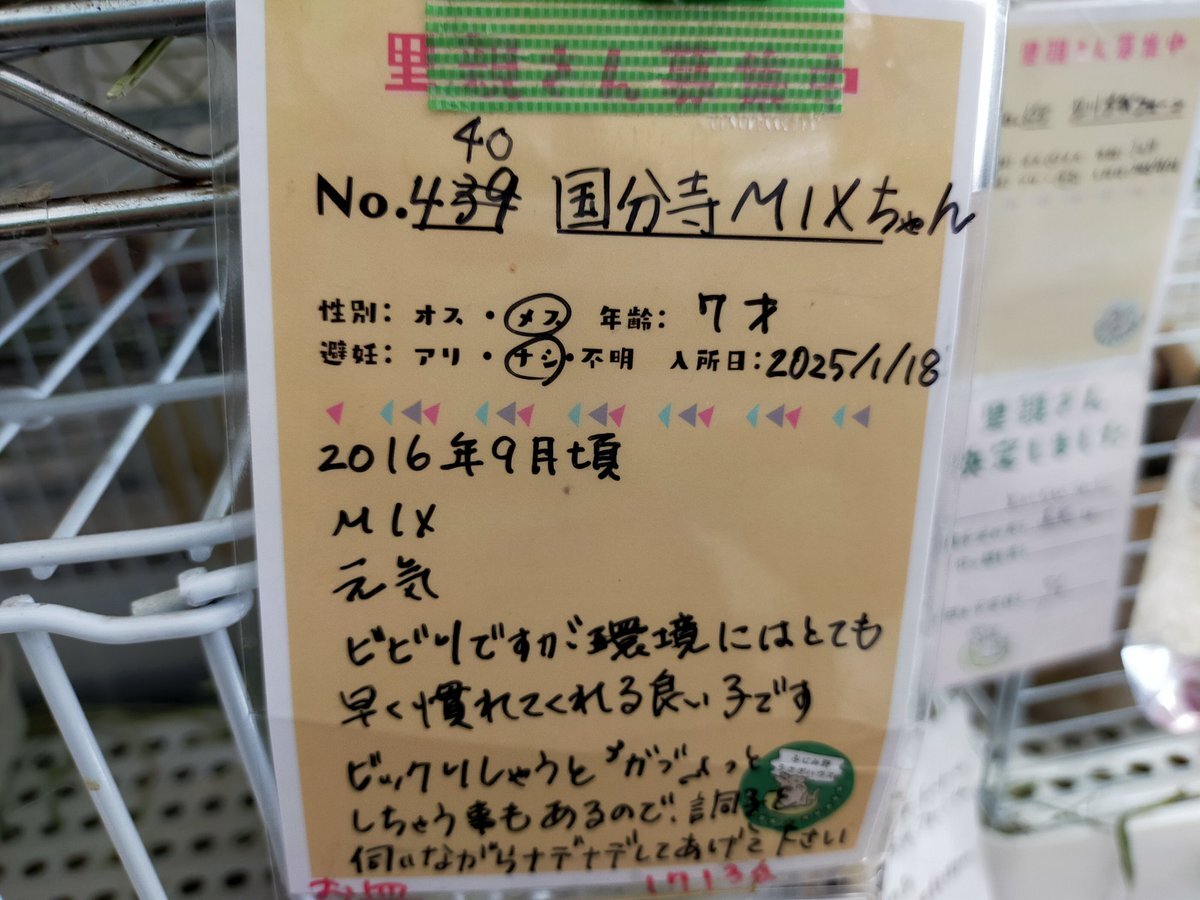 里親さん募集中
40
No.439 国分寺MIXちゃん
性別: オス・メス 年齢: 7才
避妊: アリ・ナシ・不明 入所日: 2025/1/18
2016年9月頃
MIX
元気
ビビリですが環境にはとても
早く慣れてくれる良い子です
ビックリしちゃうと"ガブ"っと
しちゃう事もあるので、調子を
伺いながらナデナデしてあげて下さい
里親さん募集中
里親さん
決定しました